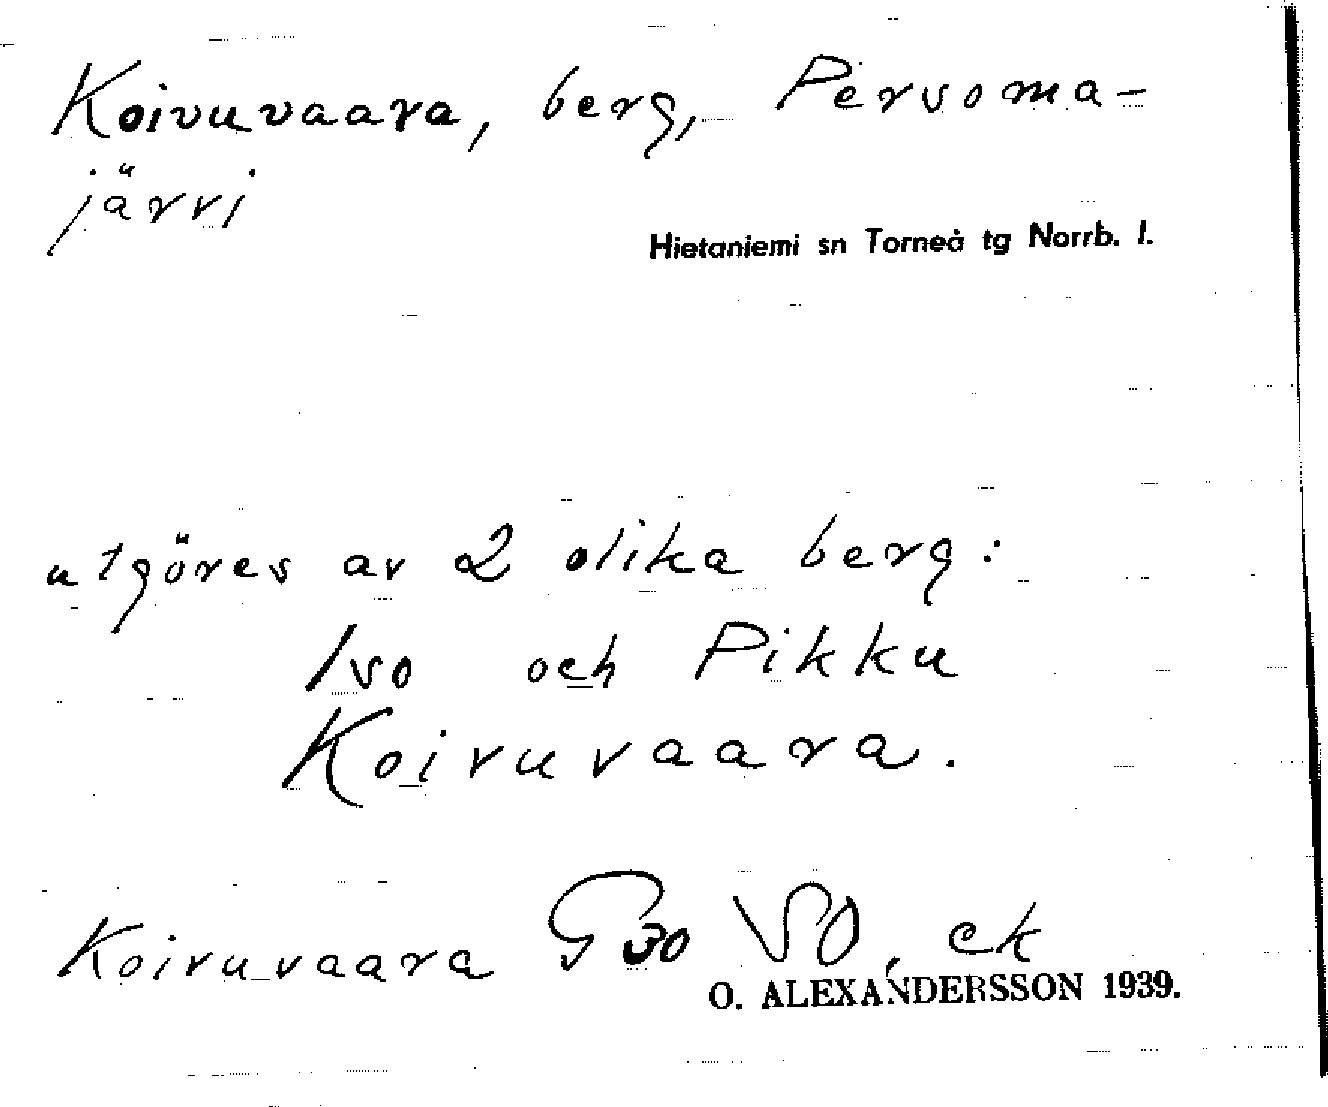 Koivuvaara, berg, Persoma-
järvi
Hietaniemi sn Torneå tg Norrb. l.
utgöres av 2 olika berg:
Iso och Pikku
Koivuvaara.
Koivuvaara G30 VSO, ek
O. ALEXANDERSSON 1939.